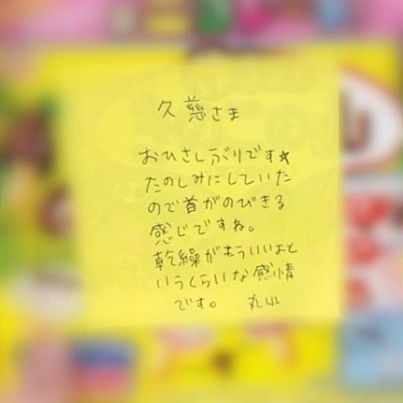 久慈さま
おひさしぶりです★
たのしみにしていた
ので首がのびきる
感じですね。
乾繰がもういいよと
いうくらいな感情
です。 丸山